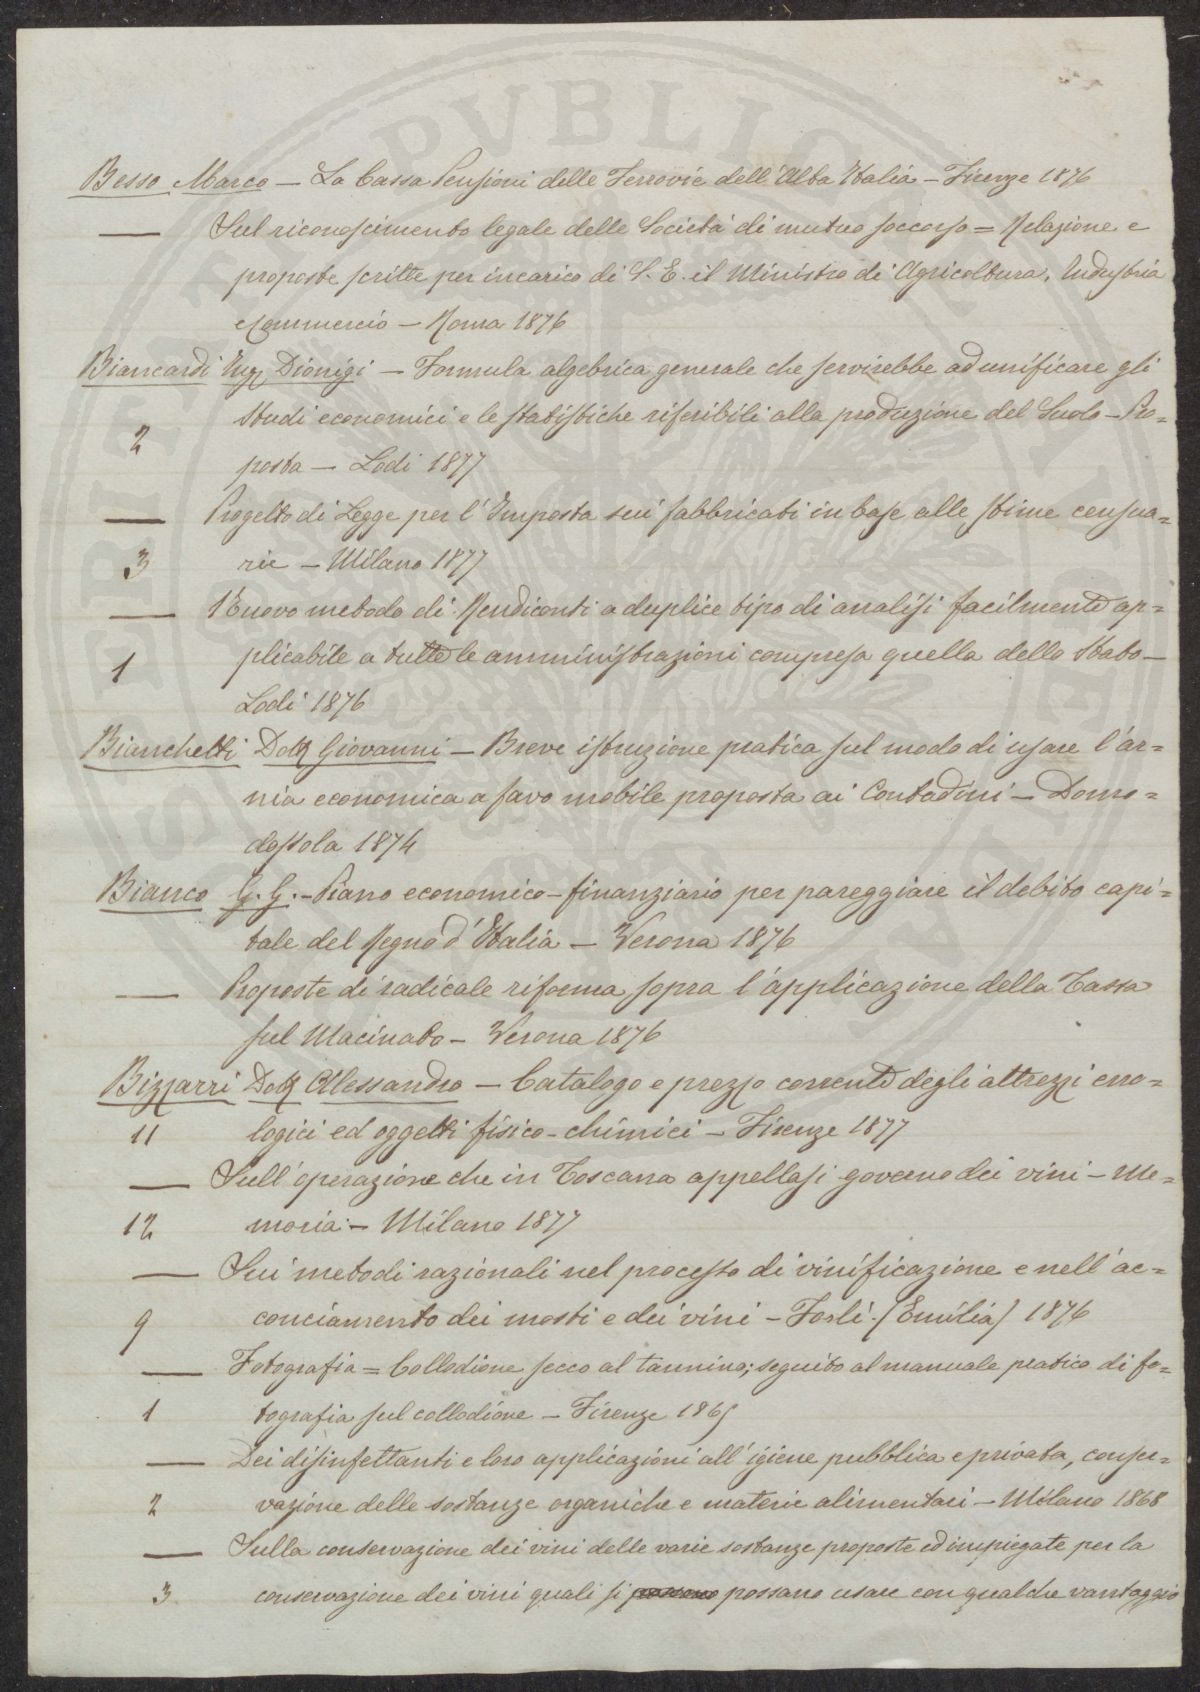 Besso Marco — La Cassa Pensioni delle Ferrovie dell'Alta Italia — Firenze 1876
— Sul riconoscimento legale delle Società di mutuo soccorso = Relazione e
proposte scritte per incarico di S. E. il Ministro di Agricoltura, Industria
e Commercio — Roma 1876
Biancardi Ing. Dionigi — Formula algebrica generale che servirebbe ad unificare gli
studi economici e le statistiche riferibili alla produzione del Suolo — Pro=
2 posta — Lodi 1877
— Progetto di Legge per l'Imposta sui fabbricati in base alle stime censua=
3 rie — Milano 1877
— Nuovo metodo di Rendiconti a duplice tipo di analisi facilmente ap=
1 plicabile a tutte le amministrazioni compresa quella dello Stato —
Lodi 1876
Bianchetti Dott. Giovanni — Breve istruzione pratica sul modo di usare l'ar=
nia economica a favo mobile proposta ai Contadini — Domo=
dossola 1874
Bianco G. G. — Piano economico-finanziario per pareggiare il debito capi=
tale del Regno d'Italia — Verona 1876
— Proposte di radicale riforma sopra l'applicazione della Tassa
sul Macinato — Verona 1876
Bizzarri Dott. Alessandro — Catalogo e prezzo corrente degli attrezzi eno=
11 logici ed oggetti fisico-chimici — Firenze 1877
— Sull'operazione che in Toscana appellasi governo dei vini — Me=
12 moria — Milano 1877
— Sui metodi razionali nel processo di vinificazione e nell'ac=
9 conciamento dei mosti e dei vini — Forlì (Emilia) 1876
— Fotografia = Collodione secco al tannino; seguito al manuale pratico di fo=
1 tografia sul collodione — Firenze 1865
— Dei disinfettanti e loro applicazioni all'igiene pubblica e privata, conser=
2 vazione delle sostanze organiche e materie alimentari — Milano 1868
— Sulla conservazione dei vini delle varie sostanze proposte ed impiegate per la
3 conservazione dei vini quali si possono possano usare con qualche vantaggio